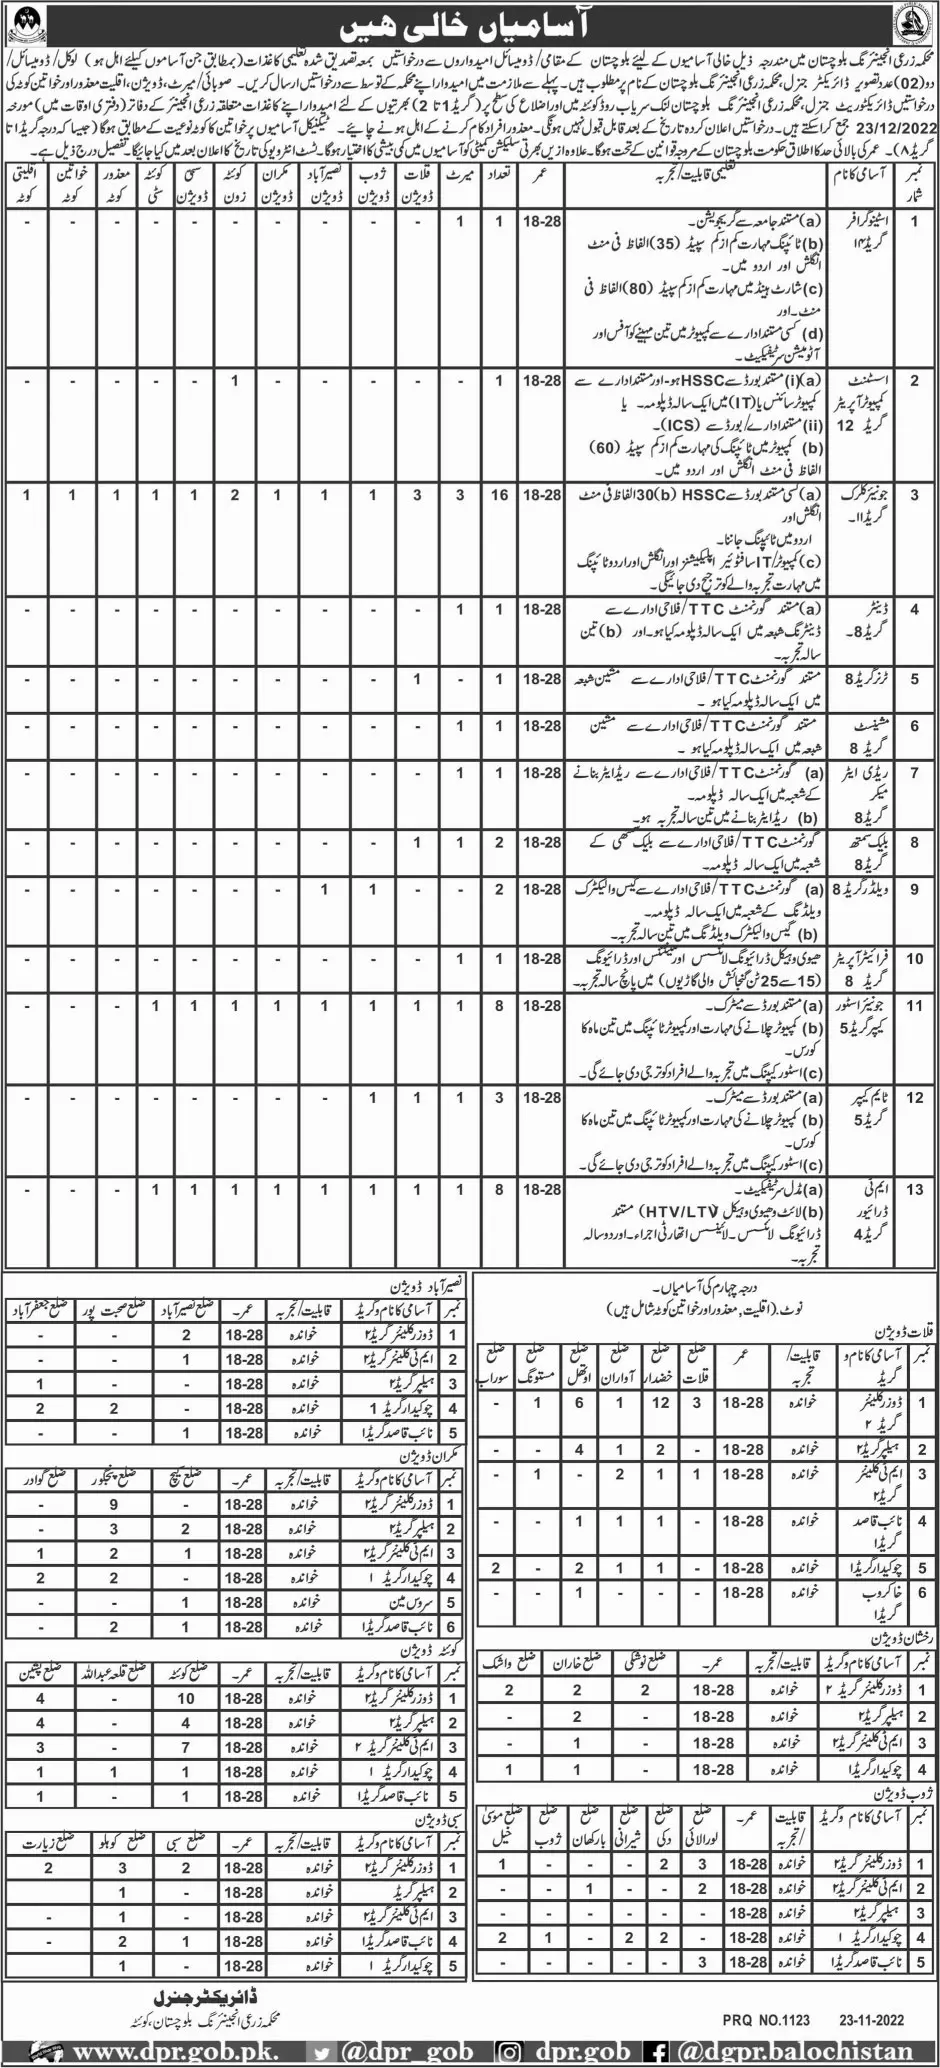 آسامیاں خالی ھیں
محکمہ زرعی انجینئرنگ بلوچستان میں مندرجہ ذیل خالی آسامیوں کے لیئے بلوچستان کے مقامی/ڈومیسائل امیدواروں سے درخواستیں بمعہ تصدیق شدہ تعلیمی کاغذات (بمطابق جن آسامیوں کیلئے اہل ہو) لوکل/ڈومیسائل/
دو(02) عدد تصویر ڈائریکٹر جنرل، محکمہ زرعی انجینئرنگ بلوچستان کے نام پر مطلوب ہیں۔ پہلے سے ملازمت میں امیدوار اپنے محکمہ کے توسط سے درخواستیں ارسال کریں۔ صوبائی/میرٹ، ڈویژن، اقلیت معذور اور خواتین کوٹہ کی
درخواستیں ڈائریکٹوریٹ جنرل، محکمہ زرعی انجینئرنگ بلوچستان لنک سریاب روڈ کوئٹہ میں اور اضلاع کی سطح پر (گریڈ 1 تا 2) بھرتیوں کے لئے امیدوار اپنے کاغذات متعلقہ زرعی انجینئر کے دفاتر (دفتری اوقات میں) مورخہ
23/12/2022 جمع کراسکتے ہیں۔ درخواستیں اعلان کردہ تاریخ کے بعد قابل قبول نہیں ہونگی۔ معذور افراد کام کرنے کے اہل ہونے چاہیے۔ ٹیکنیکل آسامیوں پر خواتین کا کوٹہ نوعیت کے مطابق ہوگا (جیسا کہ درجہ گریڈ ۱ تا
گریڈ ۸)۔ عمر کی بالائی حد کا اطلاق حکومت بلوچستان کے مروجہ قوانین کے تحت ہوگا۔ علاوہ ازیں بھرتی سلیکشن کمیٹی کو آسامیوں میں کمی بیشی کا اختیار ہوگا۔ ٹسٹ انٹرویو کی تاریخ کا اعلان بعد میں کیا جائیگا۔ تفصیل درج ذیل ہے۔
نمبر شمار آسامی کا نام تعلیمی قابلیت/تجربہ عمر تعداد میرٹ قلات ڈویژن ژوب ڈویژن نصیرآباد ڈویژن مکران ڈویژن کوئٹہ زون سبی ڈویژن کوئٹہ سٹی معذور کوٹہ خواتین کوٹہ اقلیتی کوٹہ
1 اسٹینوگرافر گریڈ ۱۴ (a) مستند جامعہ سے گریجویشن۔ 18-28 1 1 - - - - - - - - - -
(b) ٹائپنگ مہارت کم از کم سپیڈ (35) الفاظ فی منٹ
انگلش اور اردو میں۔
(c) شارٹ ہینڈ میں مہارت کم از کم سپیڈ (80) الفاظ فی
منٹ۔ اور
(d) کسی مستند ادارے سے کمپیوٹر میں تین مہینے کو آفس اور
آٹومیشن سرٹیفیکیٹ۔
2 اسسٹنٹ کمپیوٹر آپریٹر گریڈ 12 (a)(i) مستند بورڈ سے HSSC ہو۔ اور مستند ادارے سے 18-28 1 - - - - - 1 - - - - -
کمپیوٹر سائنس یا (IT) میں ایک سالہ ڈپلومہ۔ یا
(ii) مستند ادارے/بورڈ سے (ICS)۔
(b) کمپیوٹر میں ٹائپنگ کی مہارت کم از کم سپیڈ (60)
الفاظ فی منٹ انگلش اور اردو میں۔
3 جونیئر کلرک گریڈ ۱۱۔ (a) کسی مستند بورڈ سے HSSC (b) 30 الفاظ فی منٹ 18-28 16 3 3 1 1 1 2 1 1 1 1 1
انگلش اور
اردو میں ٹائپنگ جاننا۔
(c) کمپیوٹر/IT سافٹوئیر اپلیکیشنز اور انگلش اور اردو ٹائپنگ
میں مہارت تجربہ والے کو ترجیح دی جائیگی۔
4 ڈینٹر گریڈ 8۔ (a) مستند گورنمنٹ TTC/فلاحی ادارے سے 18-28 1 1 - - - - - - - - - -
ڈینٹرنگ شعبہ میں ایک سالہ ڈپلومہ کیا ہو۔ اور (b) تین
سالہ تجربہ۔
5 ٹرنر گریڈ 8 مستند گورنمنٹ TTC/فلاحی ادارے سے مشین شعبہ 18-28 1 - 1 - - - - - - - - -
میں ایک سالہ ڈپلومہ کیا ہو۔
6 مشینسٹ گریڈ 8 مستند گورنمنٹ TTC/فلاحی ادارے سے مشین 18-28 1 1 - - - - - - - - - -
شعبہ میں ایک سالہ ڈپلومہ کیا ہو۔
7 ریڈی ایٹر میکر گریڈ 8 (a) گورنمنٹ TTC/فلاحی ادارے سے ریڈ ایٹر بنانے 18-28 1 1 - - - - - - - - - -
کے شعبہ میں ایک سالہ ڈپلومہ۔
(b) ریڈ ایٹر بنانے میں تین سالہ تجربہ ہو۔
8 بلیک سمتھ گریڈ 8 گورنمنٹ TTC/فلاحی ادارے سے بلیک سمتھی کے 18-28 2 1 1 - - - - - - - - -
شعبہ میں ایک سالہ ڈپلومہ۔
9 ویلڈر گریڈ 8 (a) گورنمنٹ TTC/فلاحی ادارے سے گیس و الیکٹرک 18-28 2 - - 1 1 - - - - - - -
ویلڈنگ کے شعبہ میں ایک سالہ ڈپلومہ۔
(b) گیس و الیکٹرک ویلڈنگ میں تین سالہ تجربہ۔
10 فرائیٹر آپریٹر گریڈ 8 ھیوی وہیکل ڈرائیونگ لائسنس اور مینٹننس اور ڈرائیونگ 18-28 1 1 - - - - - - - - - -
(15 سے 25 ٹن گنجائش والی گاڑیوں) میں پانچ سالہ تجربہ۔
11 جونیئر اسٹور کیپر گریڈ 5 (a) مستند بورڈ سے میٹرک۔ 18-28 8 1 1 1 1 1 1 1 1 - - -
(b) کمپیوٹر چلانے کی مہارت اور کمپیوٹر ٹائپنگ میں تین ماہ کا
کورس۔
(c) اسٹور کیپنگ میں تجربہ والے افراد کو ترجی دی جائے گی۔
12 ٹائم کیپر گریڈ 5 (a) مستند بورڈ سے میٹرک۔ 18-28 3 1 1 1 - - - - - - - -
(b) کمپیوٹر چلانے کی مہارت اور کمپیوٹر ٹائپنگ میں تین ماہ کا
کورس۔
(c) اسٹور کیپنگ میں تجربہ والے افراد کو ترجی دی جائے گی۔
13 ایم ٹی ڈرائیور گریڈ 4 (a) مڈل سرٹیفکیٹ۔ 18-28 8 1 1 1 1 1 1 1 1 - - -
(b) لائٹ و ھیوی وہیکل (HTV/LTV) مستند
ڈرائیونگ لائسنس۔ لائیسنس اتھارٹی اجراء۔ اور دو سالہ
تجربہ۔
درجہ چہارم کی آسامیاں۔
نوٹ۔ (اقلیت، معذور اور خواتین کوٹہ شامل ہیں)
قلات ڈویژن
نمبر آسامی کا نام و گریڈ قابلیت/تجربہ عمر ضلع قلات ضلع خضدار ضلع آواران ضلع اوتھل ضلع مستونگ ضلع سوراب
1 ڈوزر کلینئر گریڈ ۲ خواندہ 18-28 3 12 1 6 1 -
2 ہیلپر گریڈ ۲ خواندہ 18-28 - 2 1 4 - -
3 ایم ٹی کلینئر گریڈ ۲ خواندہ 18-28 1 1 2 - 1 -
4 نائب قاصد گریڈ ۱ خواندہ 18-28 - 1 1 1 - -
5 چوکیدار گریڈ ۱ خواندہ 18-28 - 1 1 2 - 2
6 خاکروب گریڈ ۱ خواندہ 18-28 - - - 1 - -
رخشان ڈویژن
نمبر آسامی کا نام و گریڈ قابلیت/تجربہ عمر۔ ضلع نوشکی ضلع خاران ضلع واشک
1 ڈوزر کلینئر گریڈ ۲ خواندہ 18-28 2 2 2
2 ہیلپر گریڈ ۲ خواندہ 18-28 - 2 -
3 ایم ٹی کلینئر گریڈ ۲ خواندہ 18-28 - 1 -
4 چوکیدار گریڈ ۱ خواندہ 18-28 - 1 1
ژوب ڈویژن
نمبر آسامی کا نام و گریڈ قابلیت/تجربہ عمر۔ ضلع لورالائی ضلع دکی ضلع شیرانی ضلع بارکھان ضلع ژوب ضلع موسیٰ خیل
1 ڈوزر کلینئر گریڈ ۲ خواندہ 18-28 3 2 - - - 1
2 ایم ٹی کلینئر گریڈ ۲ خواندہ 18-28 2 - - 1 - -
3 ہیلپر گریڈ ۲ خواندہ 18-28 - - - - - -
4 چوکیدار گریڈ ۱ خواندہ 18-28 - 2 2 - 1 2
5 نائب قاصد گریڈ ۱ خواندہ 18-28 3
نصیرآباد ڈویژن
نمبر آسامی کا نام و گریڈ قابلیت/تجربہ عمر۔ ضلع نصیرآباد ضلع صحبت پور ضلع جعفرآباد
1 ڈوزر کلینئر گریڈ ۲ خواندہ 18-28 2 - -
2 ایم ٹی کلینئر گریڈ ۲ خواندہ 18-28 1 - -
3 ہیلپر گریڈ ۲ خواندہ 18-28 - - 1
4 چوکیدار گریڈ 1 خواندہ 18-28 - 2 2
5 نائب قاصد گریڈ ۱ خواندہ 18-28 1 - -
مکران ڈویژن
نمبر آسامی کا نام و گریڈ قابلیت/تجربہ عمر۔ ضلع کیچ ضلع پنجگور ضلع گوادر
1 ڈوزر کلینئر گریڈ ۲ خواندہ 18-28 - 9 -
2 ہیلپر گریڈ ۲ خواندہ 18-28 2 3 -
3 ایم ٹی کلینئر گریڈ ۲ خواندہ 18-28 1 2 1
4 چوکیدار گریڈ ۱ خواندہ 18-28 - 2 2
5 سروس مین خواندہ 18-28 1 - -
6 نائب قاصد گریڈ ۱ خواندہ 18-28 1 2 -
کوئٹہ ڈویژن
نمبر آسامی کا نام و گریڈ قابلیت/تجربہ عمر۔ ضلع کوئٹہ ضلع قلعہ عبداللہ ضلع پشین
1 ڈوزر کلینئر گریڈ ۲ خواندہ 18-28 10 - 4
2 ہیلپر گریڈ ۲ خواندہ 18-28 4 - 4
3 ایم ٹی کلینئر گریڈ ۲ خواندہ 18-28 7 - 3
4 چوکیدار گریڈ ۱ خواندہ 18-28 1 1 1
5 نائب قاصد گریڈ ۱ خواندہ 18-28 1 - 1
سبی ڈویژن
نمبر آسامی کا نام و گریڈ قابلیت/تجربہ عمر۔ ضلع سبی ضلع کوہلو ضلع زیارت
1 ڈوزر کلینئر گریڈ ۲ خواندہ 18-28 2 3 2
2 ہیلپر گریڈ خواندہ 18-28 - 1
3 ایم ٹی کلینئر گریڈ ۲ خواندہ 18-28 - 1 -
4 نائب قاصد گریڈ ۱ خواندہ 18-28 1 2 -
5 چوکیدار گریڈ ۱ خواندہ 18-28 - 1
ڈائریکٹر جنرل
محکمہ زرعی انجینئرنگ بلوچستان، کوئٹہ
PRQ NO.1123 23-11-2022
www.dpr.gob.pk. @dpr_gob www.dpr.gob @dgpr.balochistan